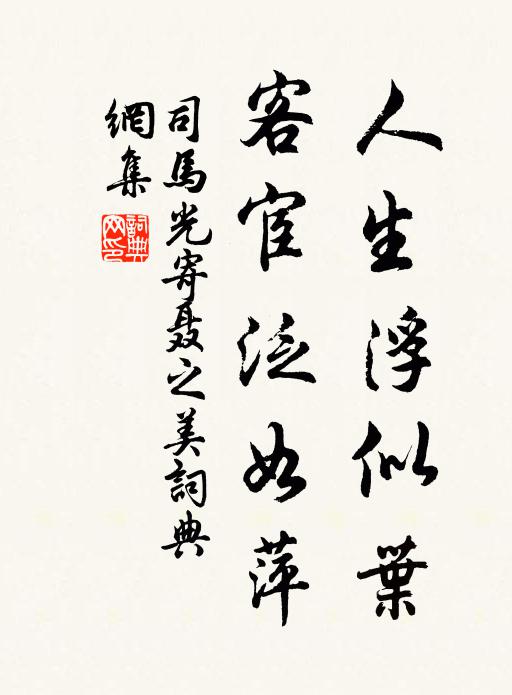 人生浮似葉
客宦泛如萍
司馬光寄聶之美詞典
網集
詞典网印